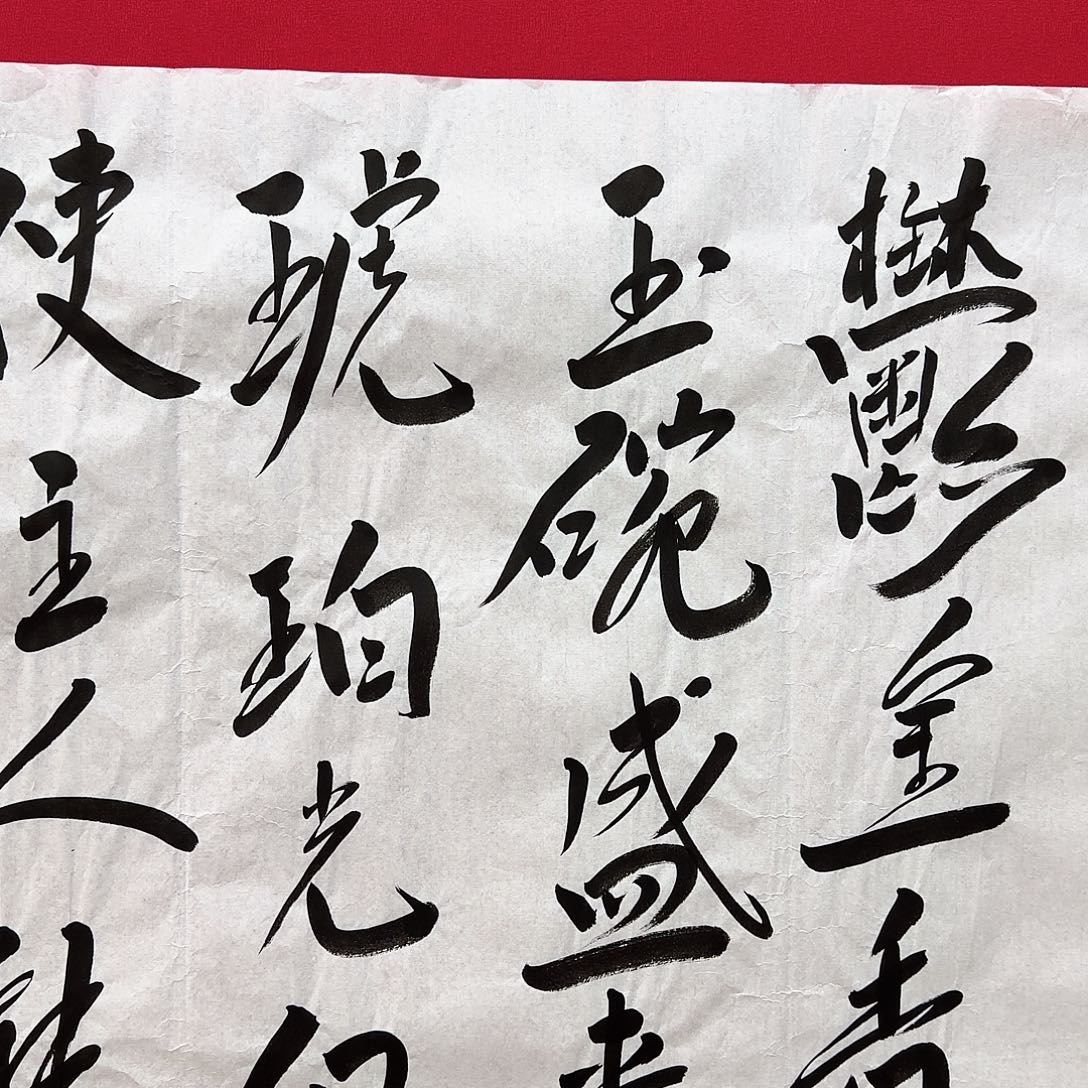 鬱金香
玉碗盛
琥珀光
使主人